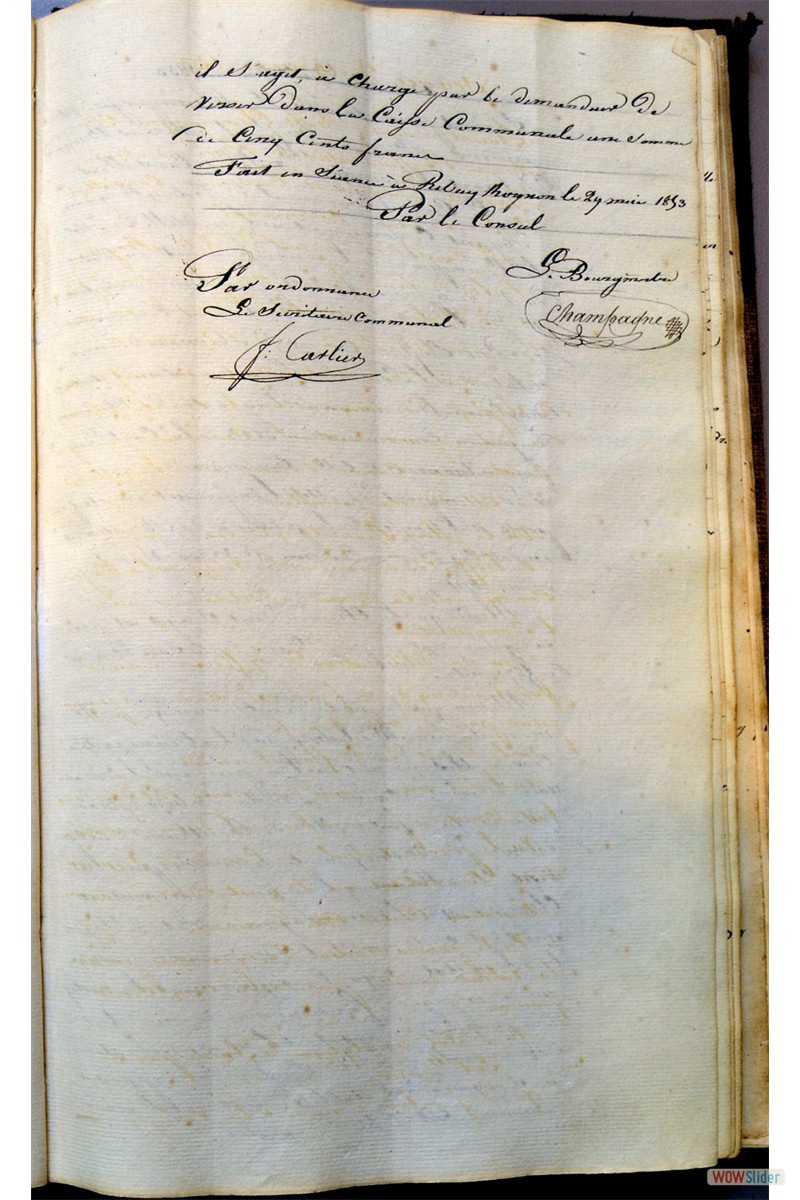 il s'agit, à charge par le demandeur de
verser dans la Caisse Communale une somme
de Cinq Cents francs
Fait en Séance à Rebecq Rognon le 29 mai 1853
Par le Conseil
Le Bourgmestre
Par ordonnance
Le Secrétaire Communal
Champagne
J: Carlier
WOWSlider